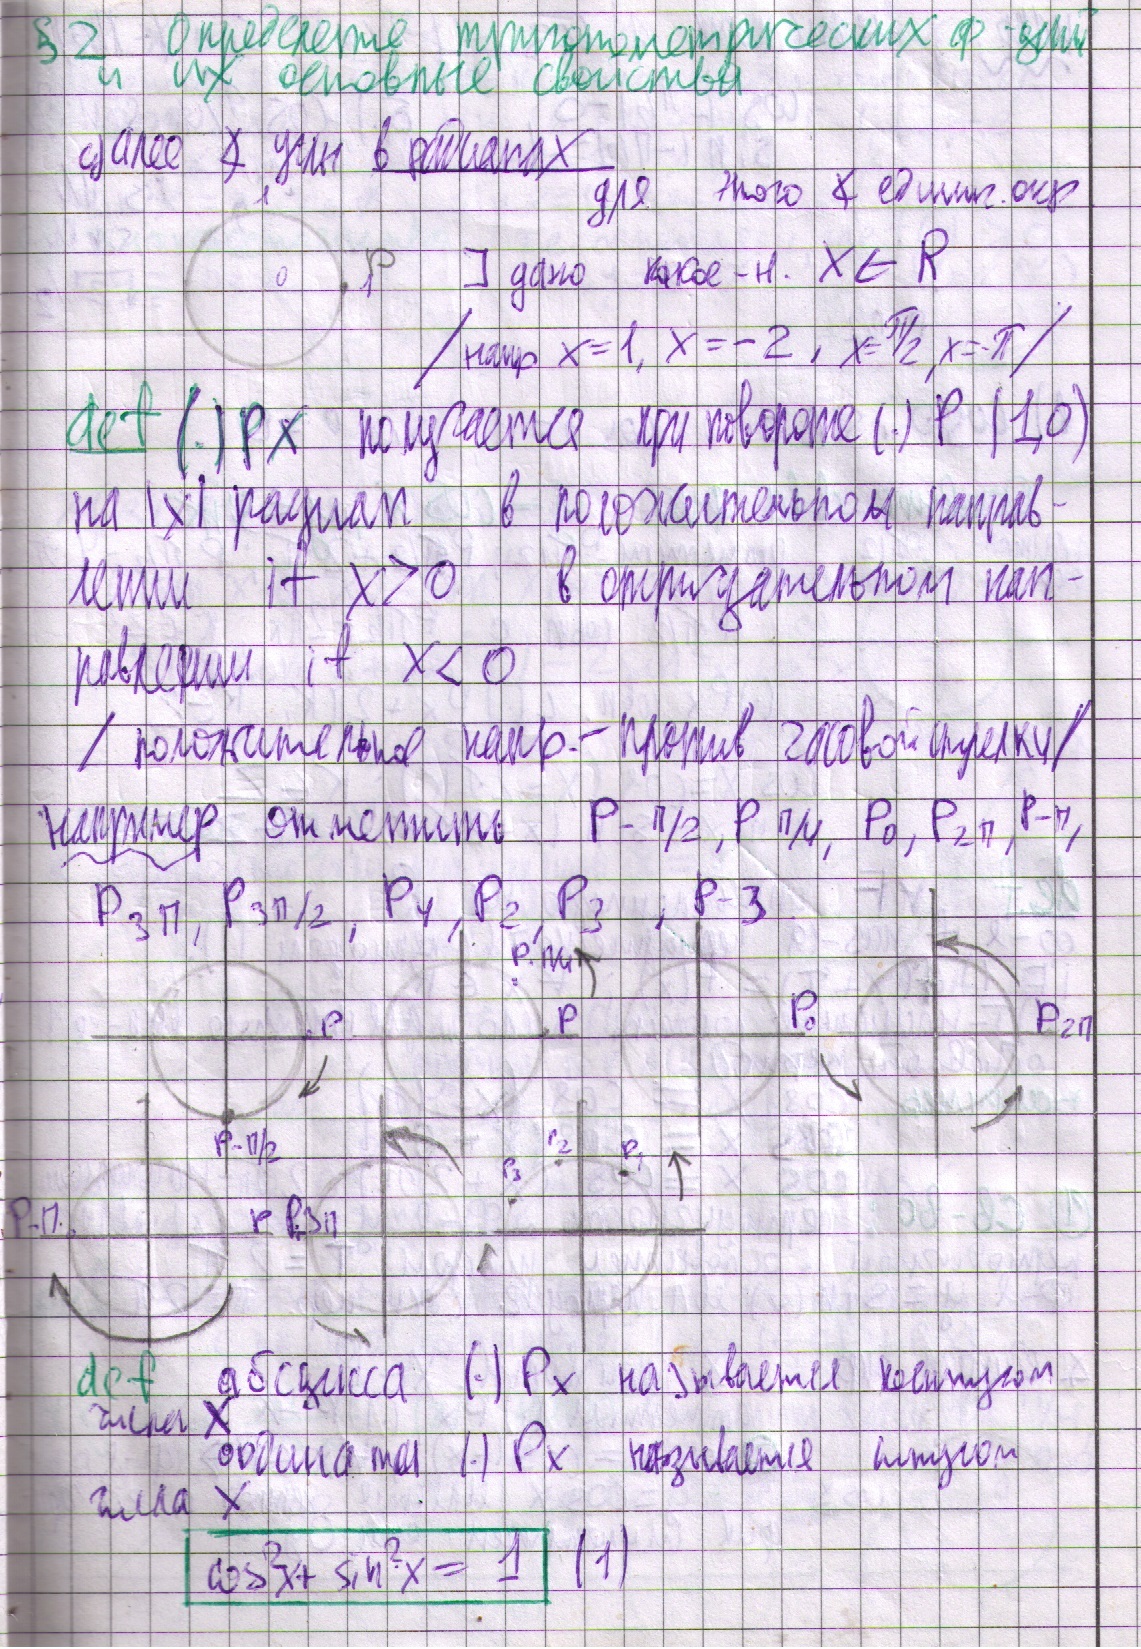 § 2 Определение тригонометрических ф-ций
и их основные свойства
далее ∡ углы в радианах
для этого ∡ единич. окр
1
0 P ] дано какое-н. X ∈ R
/напр x=1, x=-2, x=π/2, x=-π/
def (·) Px получается при повороте (·) P (1,0)
на |x| радиан в положительном направ-
лении if x>0 в отрицательном нап-
равлении if x<0
/положительное напр.- против часовой стрелки/
например отметить P-π/2, Pπ/4, P0, P2π, P-π,
P3π, P3π/2, P4, P2, P3, P-3
P Pπ/4 P P0 P2π
P-π/2
P-π P P3π P3 P2 P1
def абсцисса (·) Px называется косинусом
числа X
ордината (·) Px называется синусом
числа X
cos²x + sin²x = 1 (1)